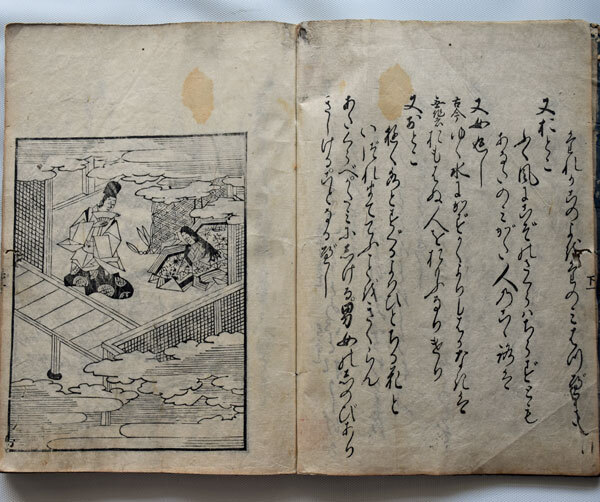 又おとこ
ふく風にこぞのさくらはちらずとも
あなたのみがた人の心は
又女返し
古今 ゆく水にかずかくよりもはかなきは
おもはぬ人をおもふなりけり
又おとこ
行水とすぐるよはひとちる花と
いづれまててふことをきくらん
あだくらべかたみにしける男女のしのびあり
きしけることなるべし